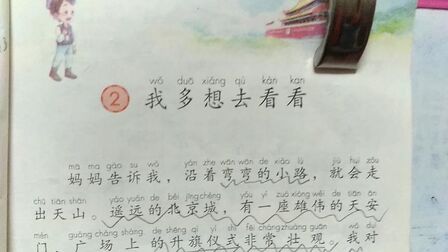 wǒ duō xiǎng qù kàn kan
2 我多想去看看
mā ma gào su wǒ yán zhe wān wān de xiǎo lù jiù huì zǒu
妈妈告诉我，沿着弯弯的小路，就会走
chū tiān shān yáo yuǎn de běi jīng chéng yǒu yí zuò xióng wěi de tiān ān
出天山。遥远的北京城，有一座雄伟的天安
mén guǎng chǎng shàng de shēng qí yí shì fēi cháng zhuàng guān wǒ duì
门，广场上的升旗仪式非常壮观。我对